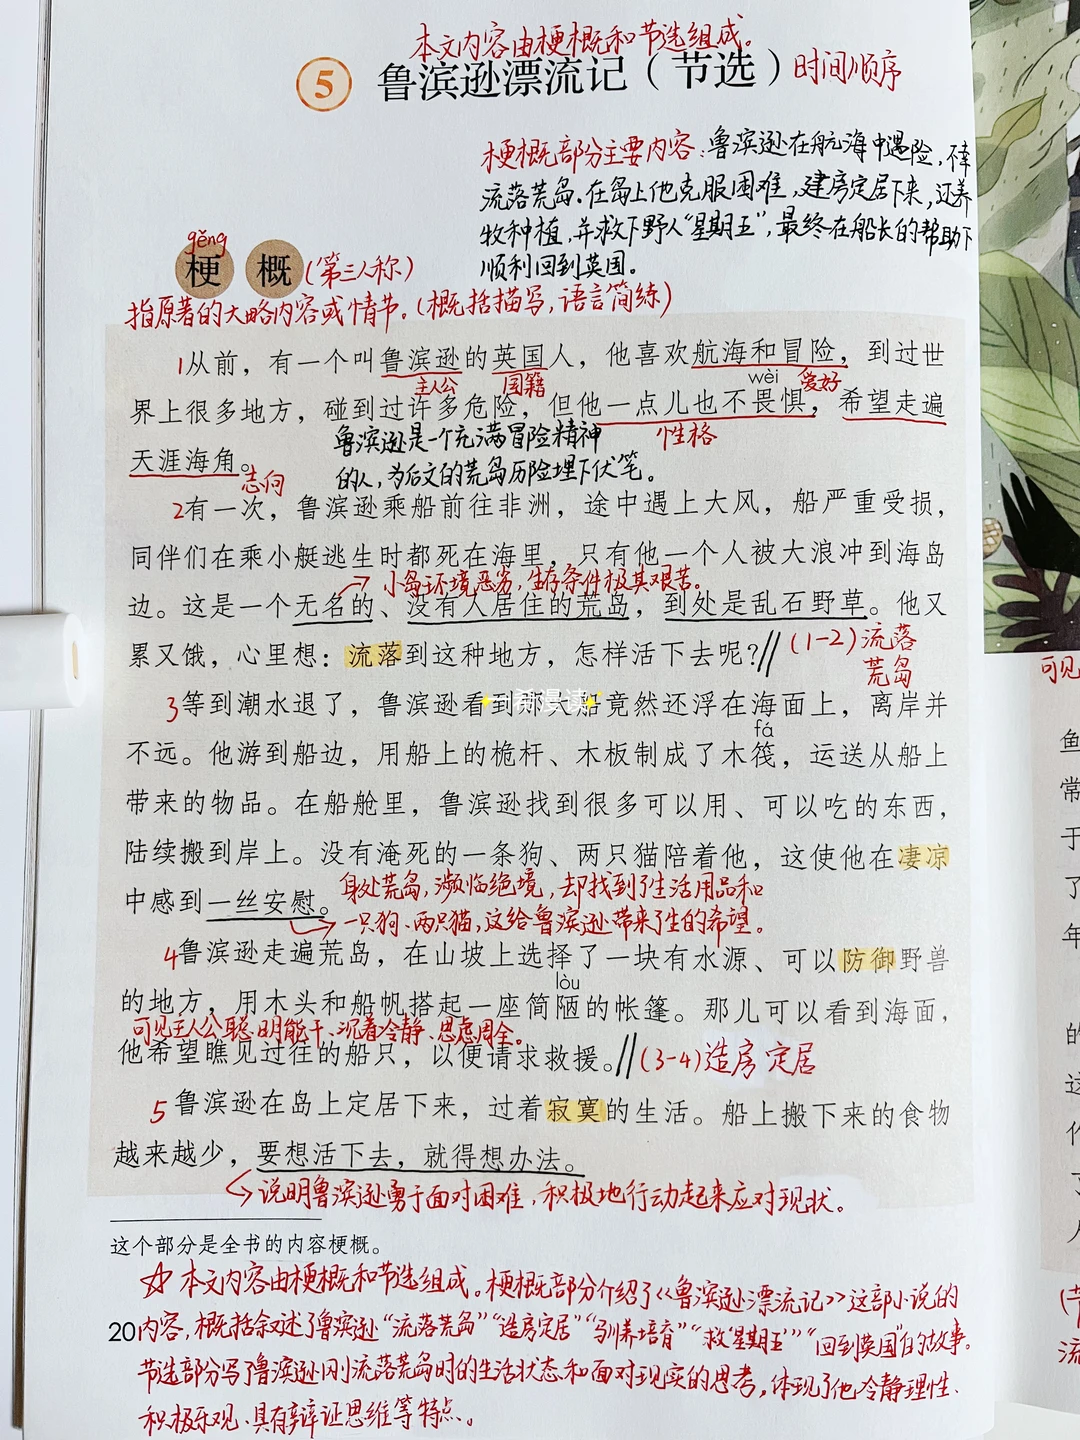 本文内容由梗概和节选组成。
5 鲁滨逊漂流记（节选）时间顺序
梗概部分主要内容：鲁滨逊在航海中遇险，不幸
流落荒岛。在岛上他克服困难，建房定居下来，还养
牧种植，并救下野人“星期五”，最终在船长的帮助下
顺利回到英国。
gěng
梗 概（第三人称）
指原著的大略内容或情节。（概括描写，语言简练）
1从前，有一个叫鲁滨逊的英国人，他喜欢航海和冒险，到过世
主人公 国籍 wèi 爱好
界上很多地方，碰到过许多危险，但他一点儿也不畏惧，希望走遍
鲁滨逊是一个充满冒险精神 性格
天涯海角。志向 的人，为后文的荒岛历险埋下伏笔。
2有一次，鲁滨逊乘船前往非洲，途中遇上大风，船严重受损，
同伴们在乘小艇逃生时都死在海里，只有他一个人被大浪冲到海岛
小岛环境恶劣，生存条件极其艰苦。
边。这是一个无名的、没有人居住的荒岛，到处是乱石野草。他又
累又饿，心里想：流落到这种地方，怎样活下去呢？//（1-2）流落
荒岛
3等到潮水退了，鲁滨逊看到 船竟然还浮在海面上，离岸并
fá
不远。他游到船边，用船上的桅杆、木板制成了木筏，运送从船上
带来的物品。在船舱里，鲁滨逊找到很多可以用、可以吃的东西，
陆续搬到岸上。没有淹死的一条狗、两只猫陪着他，这使他在凄凉
身处荒岛，濒临绝境，却找到了生活用品和
中感到一丝安慰。
一只狗、两只猫，这给鲁滨逊带来了生的希望。
4鲁滨逊走遍荒岛，在山坡上选择了一块有水源、可以防御野兽
lòu
的地方，用木头和船帆搭起一座简陋的帐篷。那儿可以看到海面，
可见主人公聪明能干、沉着冷静、思虑周全。
他希望瞧见过往的船只，以便请求救援。//（3-4）造房定居
5鲁滨逊在岛上定居下来，过着寂寞的生活。船上搬下来的食物
越来越少，要想活下去，就得想办法。
说明鲁滨逊勇于面对困难，积极地行动起来应对现状。
这个部分是全书的内容梗概。
☆本文内容由梗概和节选组成。梗概部分介绍了《鲁滨逊漂流记》这部小说的
20内容，概括叙述了鲁滨逊“流落荒岛”“造房定居”“驯养培育”“救‘星期五’”“回到英国”的故事。
节选部分写了鲁滨逊刚流落荒岛时的生活状态和面对现实的思考，体现了他冷静理性、
积极乐观、具有辩证思维等特点。
可见
鱼
常
于
了
年
的
这
作
流